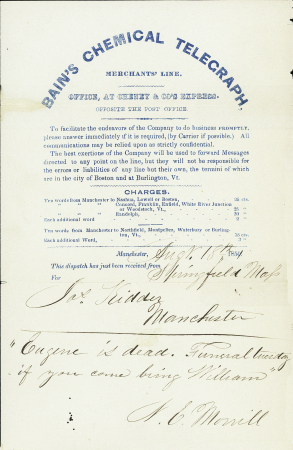 BAIN'S CHEMICAL TELEGRAPH.
MERCHANTS' LINE.
OFFICE, AT CHENEY & CO'S EXPRESS.
OPPOSITE THE POST OFFICE.
To facilitate the endeavors of the Company to do business PROMPTLY,
please answer immediately if it is required, (by Carrier if possible.) All
communications may be relied upon as strictly confidential.
The best exertions of the Company will be used to forward Messages
directed to any point on the line, but they will not be responsible for
the errors or liabilities of any line but their own, the termini of which
are in the city of Boston and at Burlington, Vt.
CHARGES.
Ten words from Manchester to Nashua, Lowell or Boston,
" " " Concord, Franklin, Enfield, White River Junction
or Woodstock, Vt., 25 "
" " " Randolph, 30 "
Each additional word
Ten words from Manchester to Northfield, Montpelier, Waterbury or Burling-
ton, Vt.,
Each additional Word,
Manchester, Augt. 18th 185
This dispatch has just been received from Springfield Mass
For
Jas Kidder
Manchester
"Eugene is dead. Funeral tuesday
if you come bring William"
N. E. Morrill